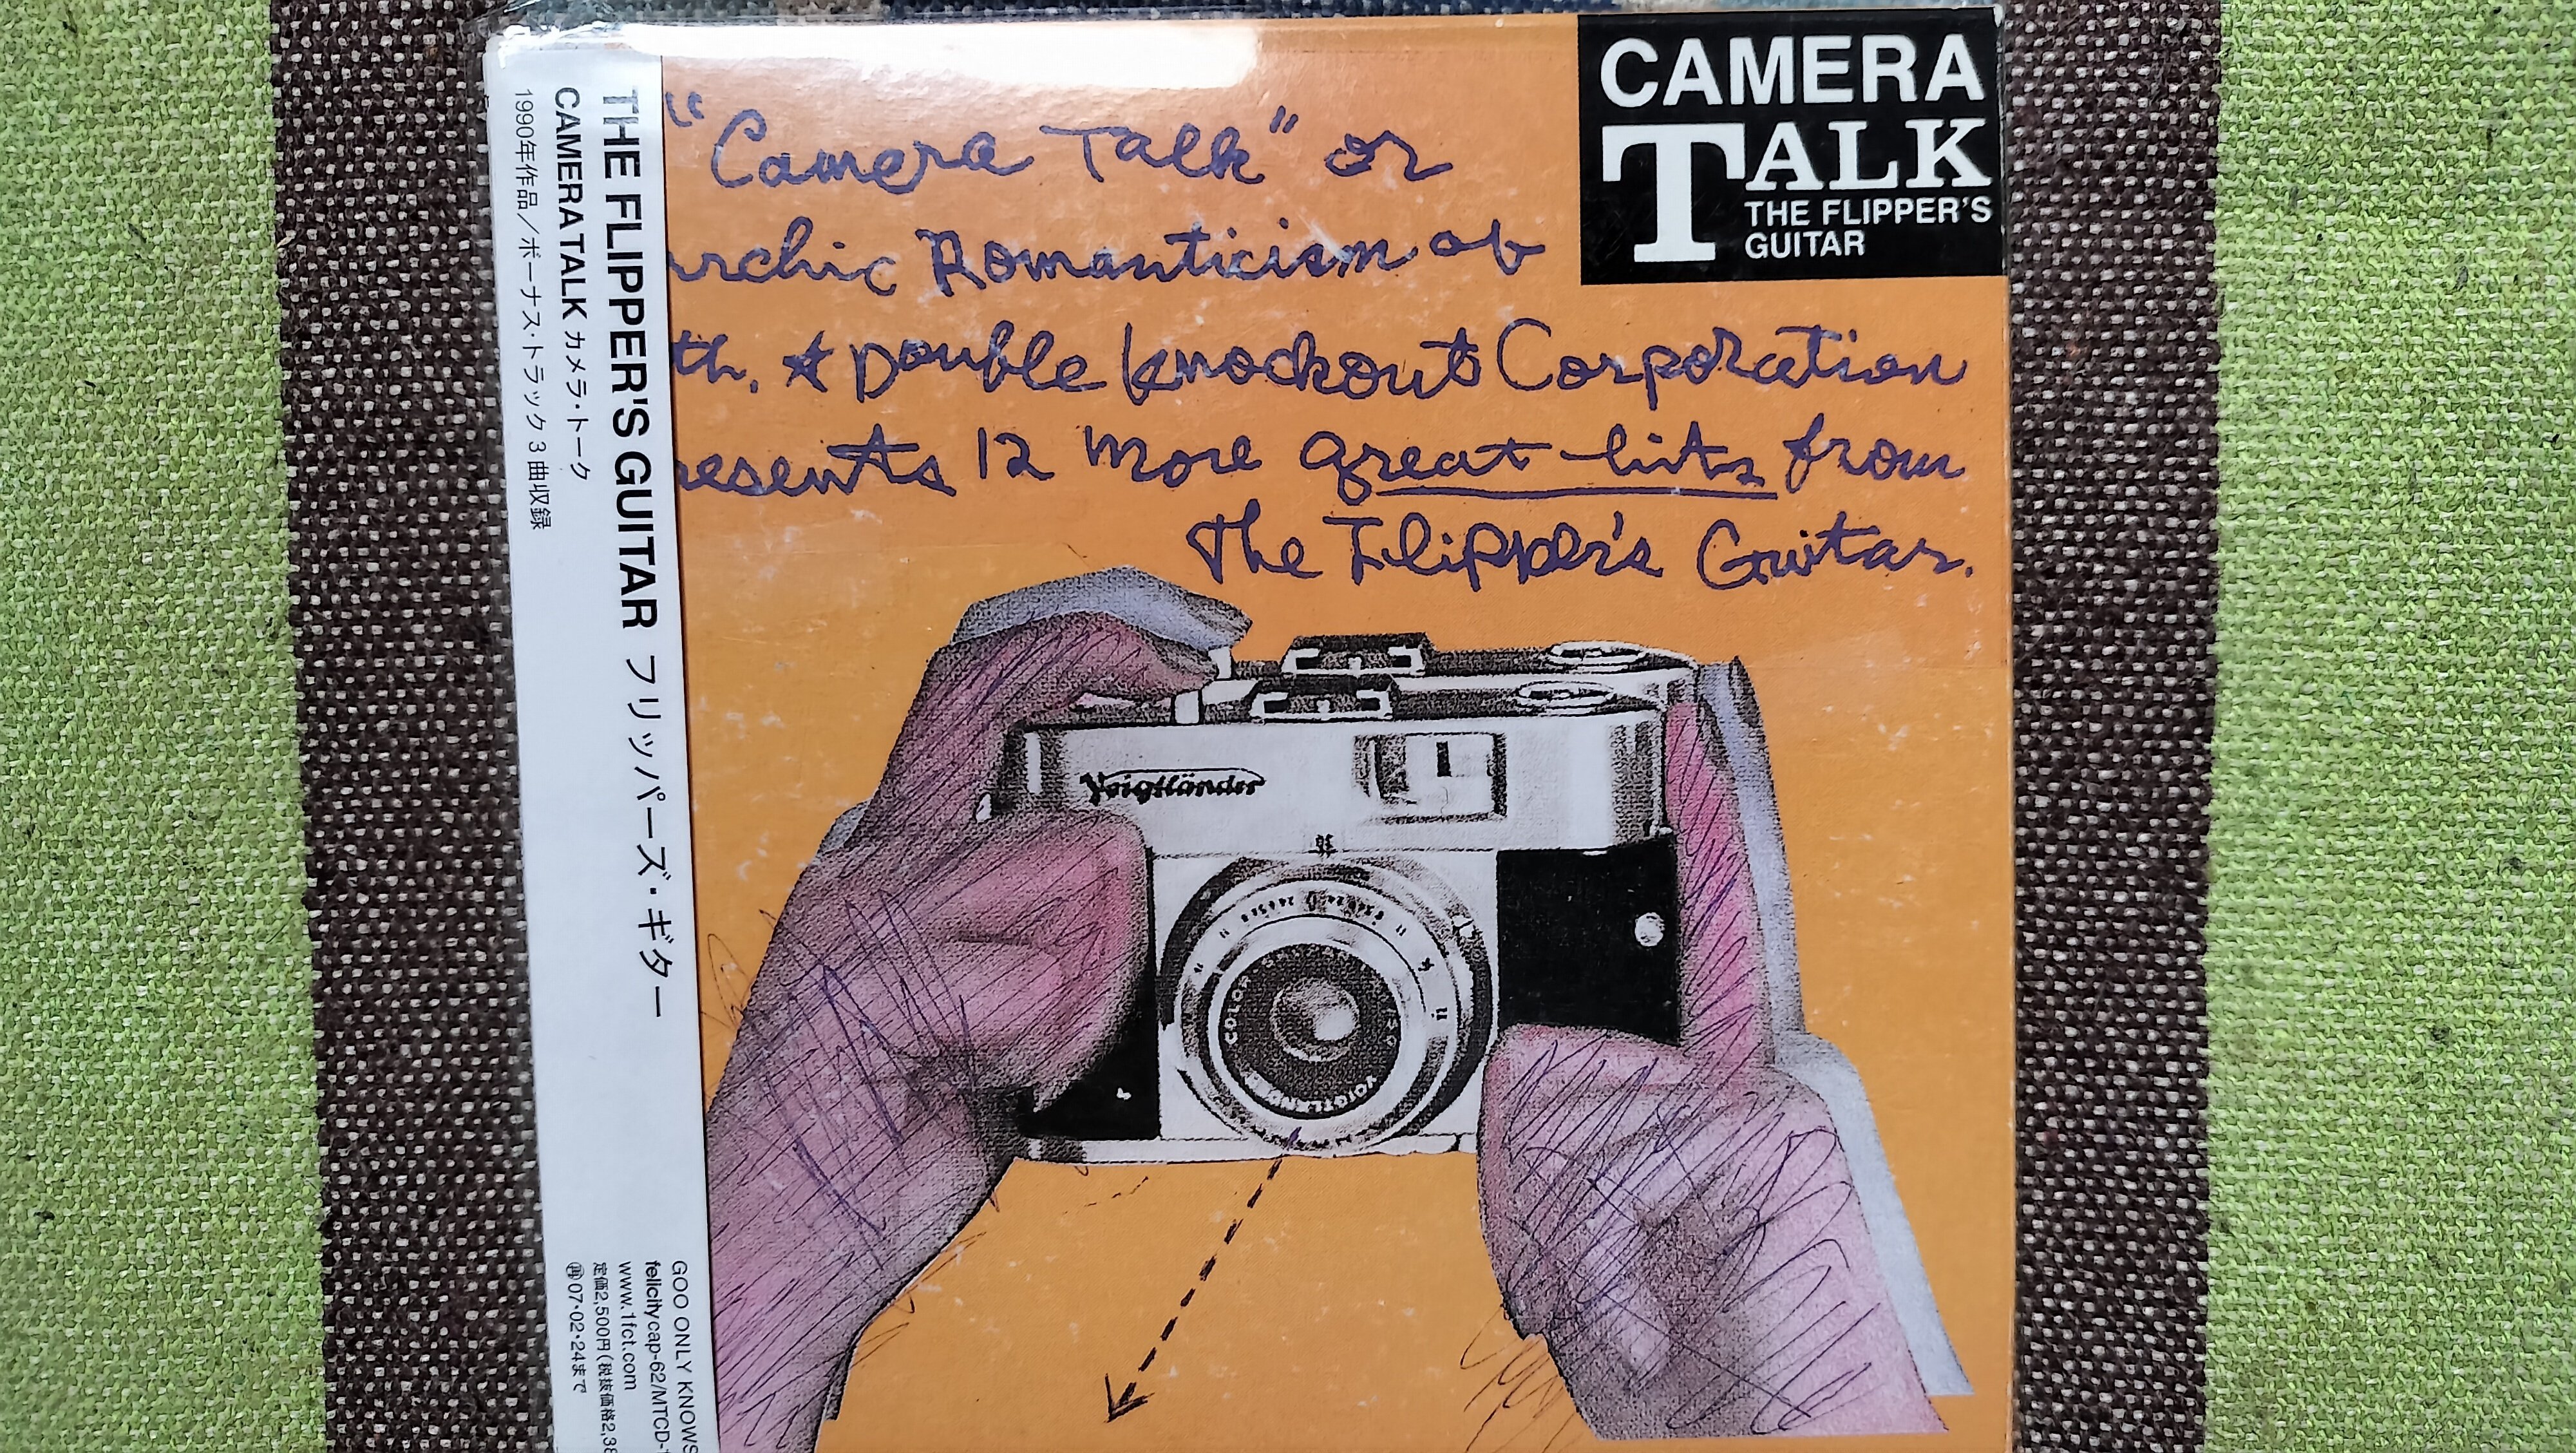 CAMERA
TALK
THE FLIPPER'S
GUITAR
"Camera Talk" or
Romanticism of
Double Knockout Corporation
12 more great hits from
The Flipper's Guitar.
Voigtländer
COLOR
THE FLIPPER'S GUITAR フリッパーズ・ギター
CAMERA TALK カメラ・トーク
1990年作品／ボーナス・トラック3曲収録
GOO ONLY KNOWS
felicitycap-62/MTCD-
www.1fct.com
定価2,500円(税抜価格2,38
再07・02・24まで